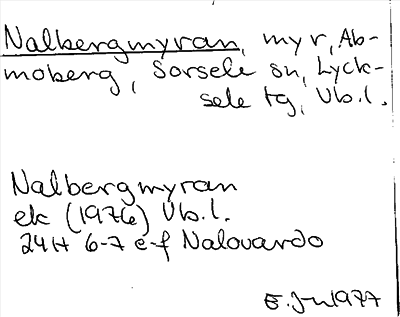 Nalbergmyran, myr, Ab-
moberg, Sorsele sn, Lyck-
sele tg, Vb.l.
Nalbergmyran
ek (1976) Vb.l.
24H 6-7 e-f Nalovardo
1977